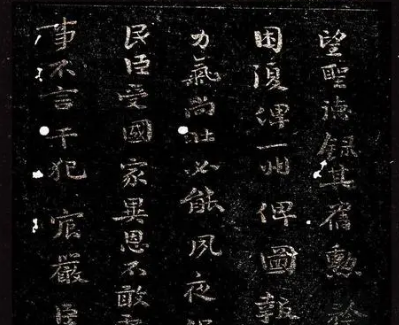 望聖德錄其舊勳矜
困復俾一州俾圖報
力氣尚壯必能夙夜
民臣受國家異恩不敢
事不言干犯宸嚴臣